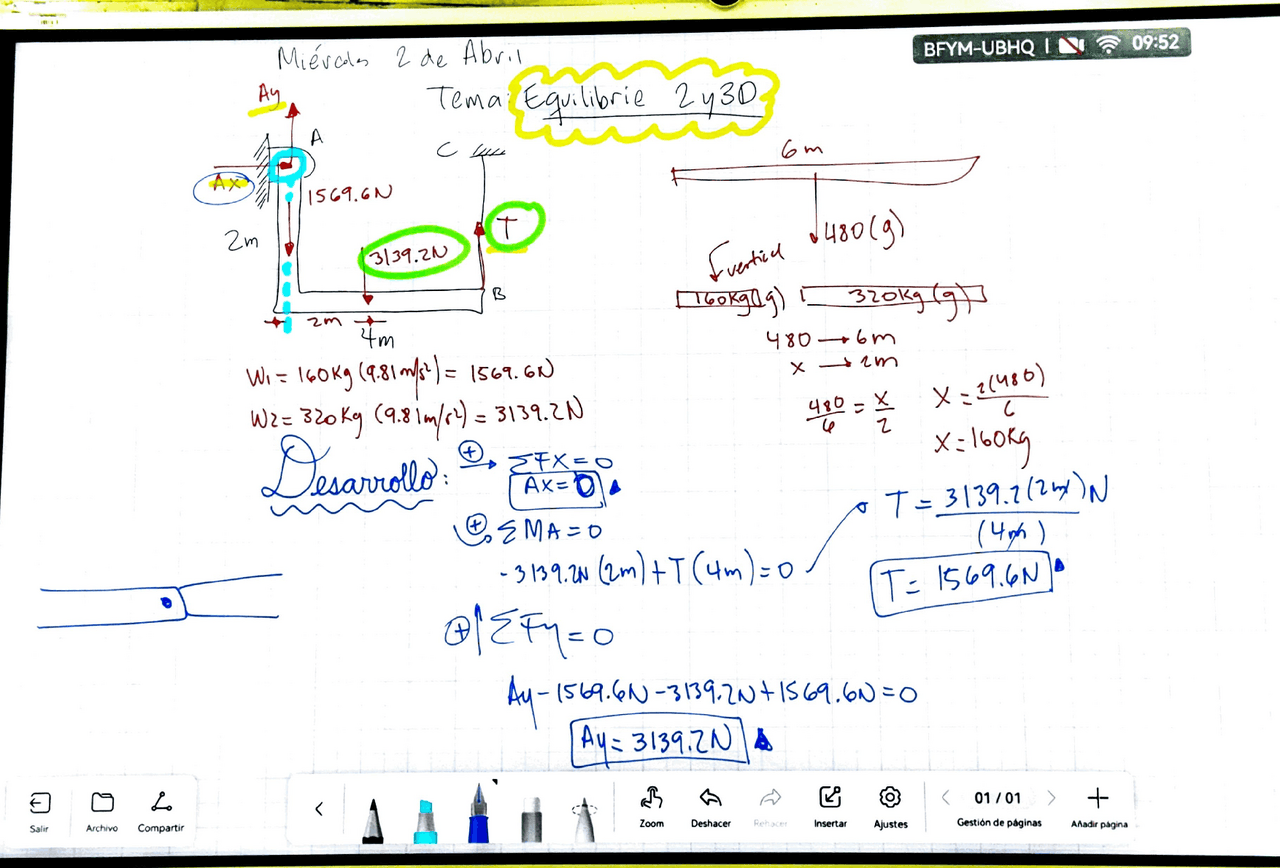 BFYM-UBHQ | 09:52
Miércoles 2 de Abril
Tema: Equilibrie 2 y 3D
Ay
A
Ax
1569.6N
2m
3139.2N
C
T
B
2m
4m
6m
480(g)
vertical
160Kg(g) 320Kg(g)
480 → 6m
x → 2m
480/6 = x/2
X = 2(480)/6
X = 160Kg
W1 = 160Kg (9.81 m/s²) = 1569.6N
W2 = 320Kg (9.81 m/s²) = 3139.2N
Desarrollo:
⊕→ ΣFX = 0
AX = 0
⊕ ΣMA = 0
-3139.2N (2m) + T (4m) = 0
T = 3139.2 (2m) N / (4m)
T = 1569.6N
⊕↑ ΣFy = 0
Ay - 1569.6N - 3139.2N + 1569.6N = 0
Ay = 3139.2N
Salir
Archivo
Compartir
Zoom
Deshacer
Rehacer
Insertar
Ajustes
01 / 01
Gestión de páginas
Añadir página